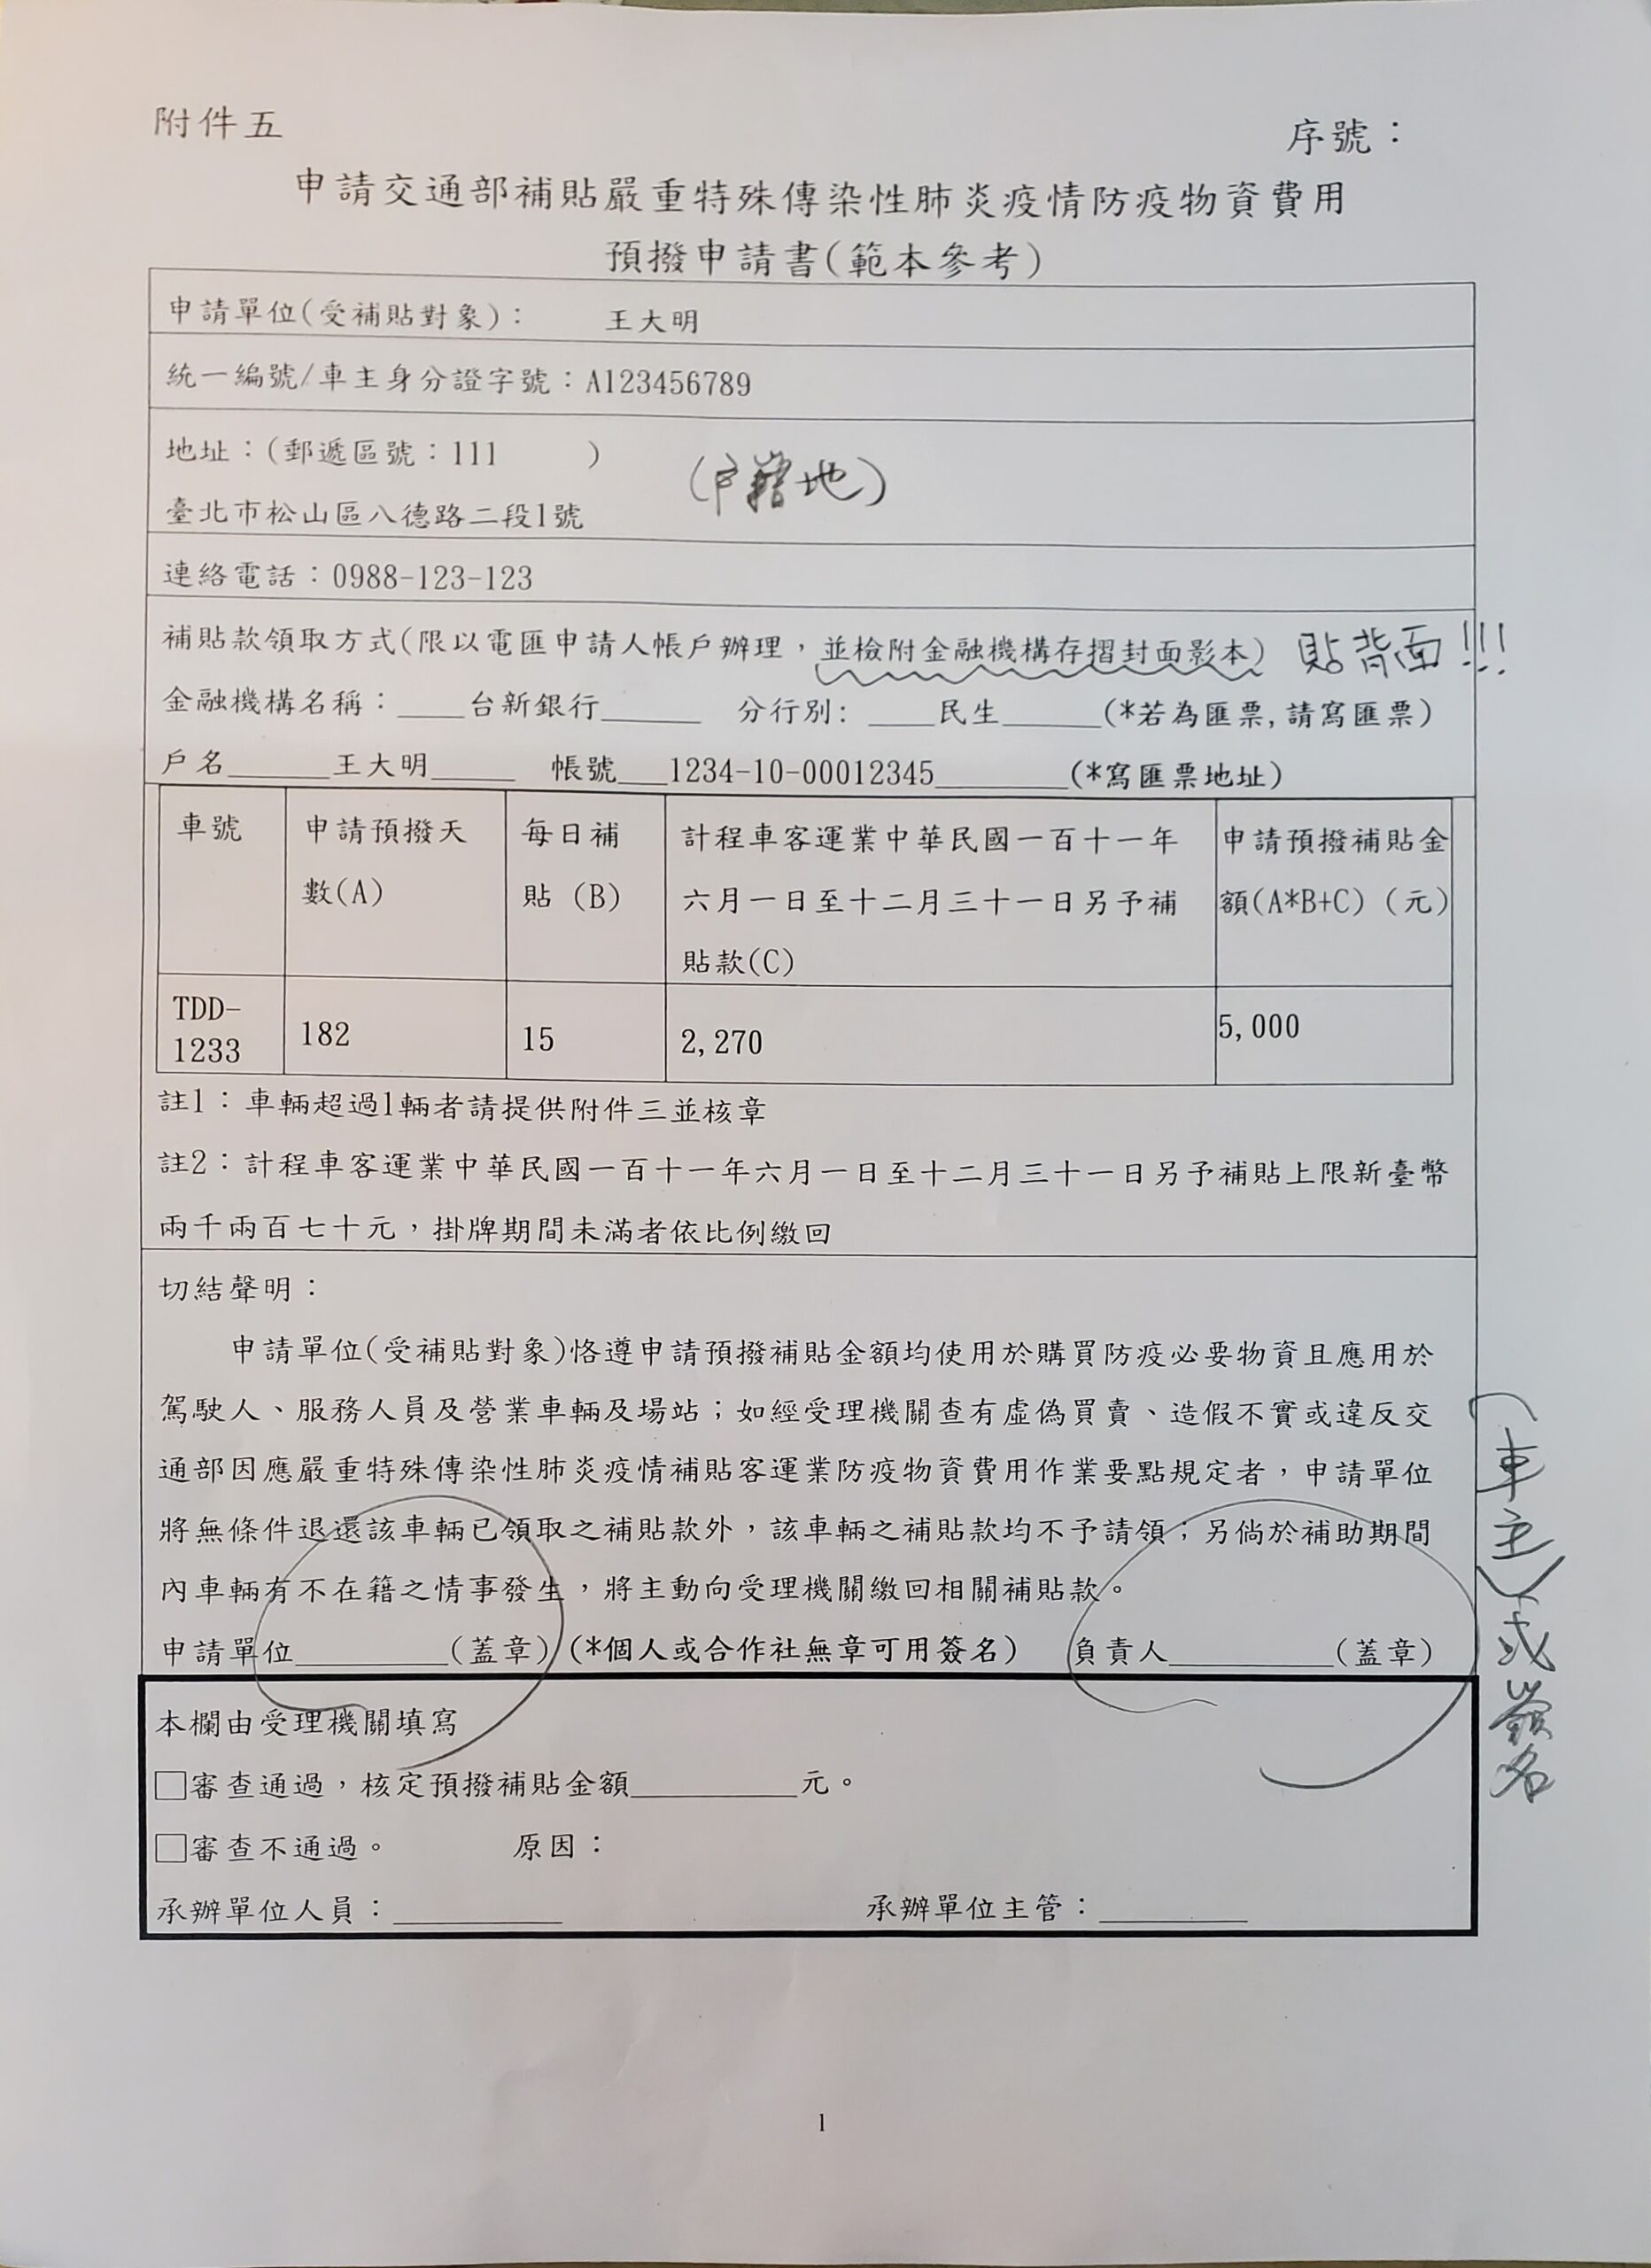 附件五
序號：
申請交通部補貼嚴重特殊傳染性肺炎疫情防疫物資費用
預撥申請書(範本參考)
申請單位(受補貼對象)： 王大明
統一編號/車主身分證字號：A123456789
地址：(郵遞區號：111 )
(戶籍地)
臺北市松山區八德路二段1號
連絡電話：0988-123-123
補貼款領取方式(限以電匯申請人帳戶辦理，並檢附金融機構存摺封面影本) 貼背面!!!
金融機構名稱：____台新銀行______ 分行別：____民生______(*若為匯票,請寫匯票)
戶名______王大明_____ 帳號___1234-10-00012345________(*寫匯票地址)
車號
申請預撥天
數(A)
每日補
貼 (B)
計程車客運業中華民國一百十一年
六月一日至十二月三十一日另予補
貼款(C)
申請預撥補貼金
額(A*B+C) (元)
TDD-
1233
182
15
2,270
5,000
註1：車輛超過1輛者請提供附件三並核章
註2：計程車客運業中華民國一百十一年六月一日至十二月三十一日另予補貼上限新臺幣
兩千兩百七十元，掛牌期間未滿者依比例繳回
切結聲明：
申請單位(受補貼對象)恪遵申請預撥補貼金額均使用於購買防疫必要物資且應用於
駕駛人、服務人員及營業車輛及場站；如經受理機關查有虛偽買賣、造假不實或違反交
通部因應嚴重特殊傳染性肺炎疫情補貼客運業防疫物資費用作業要點規定者，申請單位
將無條件退還該車輛已領取之補貼款外，該車輛之補貼款均不予請領；另倘於補助期間
內車輛有不在籍之情事發生，將主動向受理機關繳回相關補貼款。
申請單位_________(蓋章)(*個人或合作社無章可用簽名) 負責人__________(蓋章)
(車主)或簽名
本欄由受理機關填寫
□審查通過，核定預撥補貼金額__________元。
□審查不通過。 原因：
承辦單位人員：__________ 承辦單位主管：_________
1